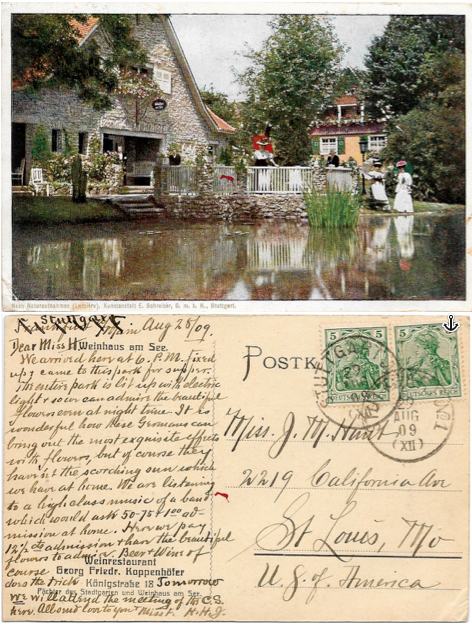 Nach Naturaufnahmen (Leitpriv), Kunstanstalt E. Schreiber, G. m. b. H., Stuttgart.
Stuttgart
Aug 25/09.
Dear Miss H
Weinhaus am See.
We arrived here at 6. P.M. fixed
up & came to this park for supper.
The entire park is lit up with electric
light & so we can admire the beautiful
flowers even at night time. It is
wonderful how these Germans can
bring out the most exquisite effects
with flowers, but of course they
haven't the scorching sun which
we have at home. We are listening
to a high class music of a band
which would ask 50-75 & 1.00 ad-
mission at home. Here we pay
12½ cts admission & have the beautiful
flowers to admire. Beer & Wine of
course
Weinrestaurant
Georg Friedr. Koppenhöfer
does the trick
Königstraße 18
Tomorrow
Pächter des Stadtgarten und Weinhaus am See.
we will attend the meeting of the C.S.
here. All send love to you & Miss
H.H.J.
POSTK
5 5
DEUTSCHES REICH
STUTTGART
AUG
09
(XII)
Miss. J. M. Hunt
2219 California Ave
St Louis, Mo
U. S. of America